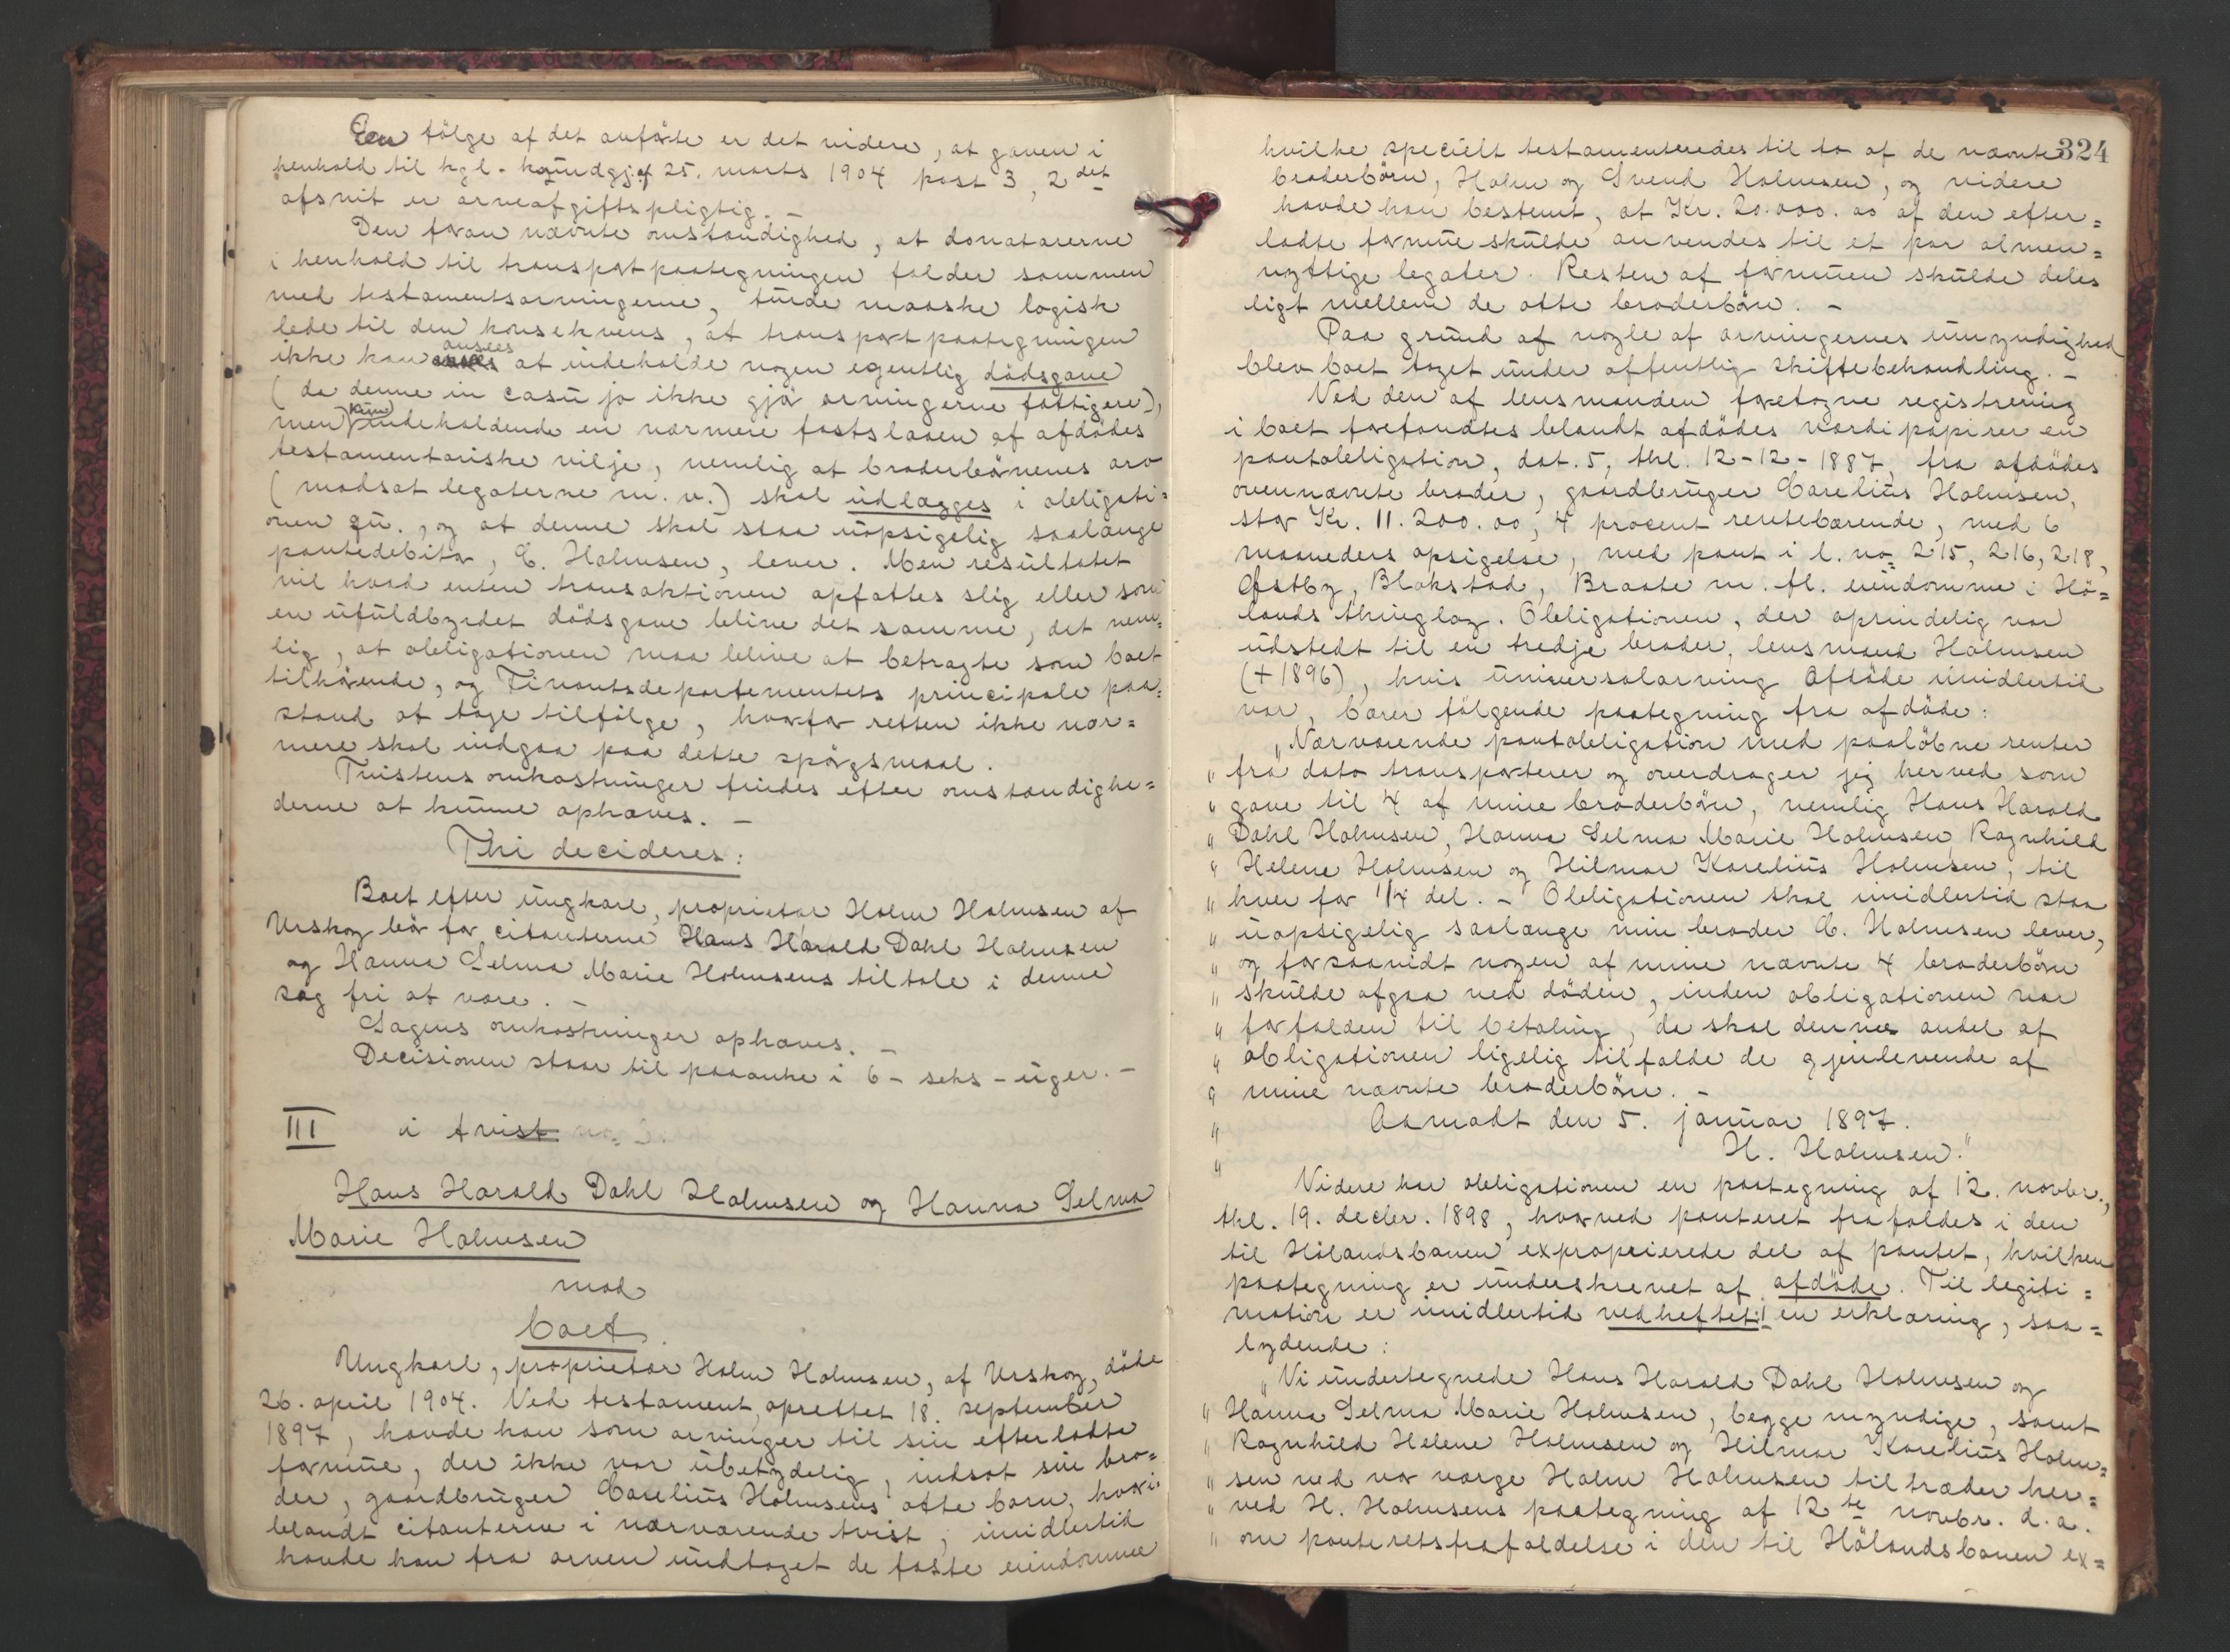 En følge af det anførte er det videre, at gaven i
henhold til kgl. kundgj. af 25. marts 1904 post 3, 2det
afsnit er arveafgiftspligtig. –
Den foran nævnte omstændighed, at donatarerne
i henhold til transportpaategningen falder sammen
med testamentsarvingerne, turde maaske logisk
lede til den konsekvens, at transportpaategningen
ikke kan ansees at indeholde nogen egentlig dødsgave
(da denne in casu jo ikke gjør arvingerne fattigere),
men kun indeholdende en nærmere fastslaaen af afdødes
testamentariske vilje, nemlig at broderbørnenes arv
(modsat legaterne m. v.) skal udlægges i obligati=
onen qu., og at denne skal staa uopsigelig saalænge
pantedebitor, C. Holmsen, lever. Men resultatet
vil hvad enten transaktionen opfattes slig eller som
en ufuldbyrdet dødsgave blive det samme, det nem=
lig, at obligationen maa blive at betragte som boet
tilhørende, og Finantsdepartementets principale paa=
stand at tage tilfølge, hvorfor retten ikke nær=
mere skal indgaa paa dette spørgsmaal.
Tvistens omkostninger findes efter omstændighe=
derne at kunne ophæves. –
Thi decideres:
Boet efter ungkarl, proprietær Holm Holmsen af
Urskog bør for citanterne Hans Harald Dahl Holmsen
og Hanna Selma Marie Holmsens tiltale i denne
sag fri at være. –
Sagens omkostninger ophæves. –
Decisionen staar til paaanke i 6 – seks – uger. –
III i tvist
Hans Harald Dahl Holmsen og Hanna Selma
Marie Holmsen
mod
boet.
Ungkarl, proprietær Holm Holmsen, af Urskog, døde
26. april 1904. Ved testament, oprettet 18. september
1897, havde han som arvinger til sin efterladte
formue, der ikke var ubetydelig, indsat sin bro=
der, gaardbruger Carelius Holmsens otte barn, hvori=
blandt citanterne i nærværende tvist; imidlertid
havde han fra arven undtaget de faste eiendomme
324
hvilke specielt testamenteredes til to af de nævnte
broderbørn, Holm og Svend Holmsen, og videre
havde han bestemt, at Kr. 20.000.00 af den efter=
ladte formue skulde anvendes til et par almen=
nyttige legater. Resten af formuen skulde deles
ligt mellem de otte broderbørn. –
Paa grund af nogle af arvingernes umyndighed
blev boet taget under offentlig skiftebehandling. –
Ved den af lensmanden foretagne registrering
i boet forefandtes blandt afdødes værdipapirer en
pantobligation, dat. 5, thl. 12-12-1887, fra afdødes
ovennævnte broder, gaardbruger Carelius Holmsen,
stor Kr. 11.200.00, 4 procent rentebærende, med 6
maaneders opsigelse, med pant i l. no 215, 216, 218,
Østby, Blakstad, Braate m. fl. eiendomme i Hø=
lands thinglag. Obligationen, der oprindelig var
udstedt til en tredje broder, lensmand Holmsen
(+ 1896), hvis universalarving Afdøde imidlertid
var, bærer følgende paategning fra afdøde:
„Nærværende pantobligation med paaløbne renter
„ fra dato transporterer og overdrager jeg herved som
„ gave til 4 af mine broderbørn, nemlig Hans Harald
„ Dahl Holmsen, Hanna Selma Marie Holmsen, Ragnhild
„ Helene Holmsen og Hilmar Karelius Holmsen, til
„ hver for 1/4 del. – Obligationen skal imidlertid staa
„ uopsigelig saalænge min broder C. Holmsen lever,
„ og forsaavidt nogen af mine nævnte 4 broderbørn
„ skulde afgaa ved døden, inden obligationen var
„ forfalden til betaling, da skal dennes andel af
„ obligationen ligelig tilfalde de gjenlevende af
„ mine nævnte broderbørn. –
„ Aamodt den 5. januar 1897.
„ H. Holmsen.“
Videre har obligationen en paategning af 12. novbr.,
thl. 19. decbr. 1898, hvorved panteret frafaldes i den
til Hølandsbanen exproprierede del af pantet, hvilken
paategning er underskrevet af afdøde. Til legiti=
mation er imidlertid vedheftet en erklæring, saa=
lydende:
„Vi undertegnede Hans Harald Dahl Holmsen og
„ Hanna Selma Marie Holmsen, begge myndige, samt
„ Ragnhild Helene Holmsen og Hilmar Karelius Holm=
„ sen ved vor værge Holm Holmsen tiltræder her=
„ ved H. Holmsens paategning af 12te novbr. d. a.
„ om panteretsfrafaldelse i den til Hølandsbanen ex=